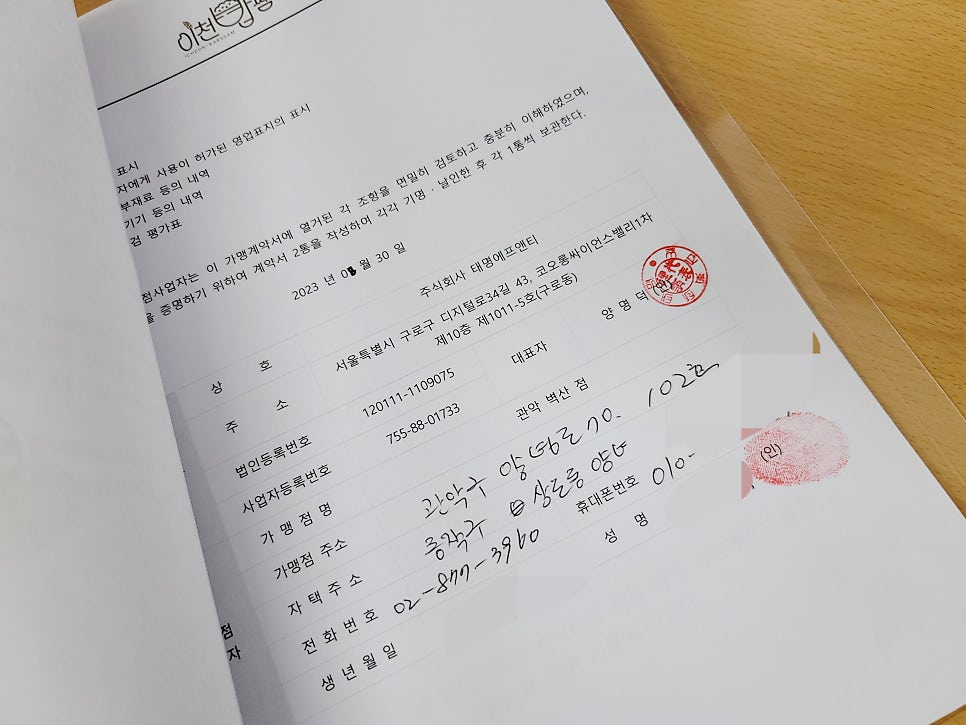 이천
ICHEON·BABSSAM
표시
자에게 사용이 허가된 영업표지의 표시
부재료 등의 내역
기기 등의 내역
검 평가표
점사업자는 이 가맹계약서에 열거된 각 조항을 면밀히 검토하고 충분히 이해하였으며,
을 증명하기 위하여 계약서 2통을 작성하여 각각 기명 . 날인한 후 각 1통씩 보관한다.
2023 년 08 월 30 일
상 호 주식회사 태명에프앤티
주 소 서울특별시 구로구 디지털로34길 43, 코오롱싸이언스밸리1차
제10층 제1011-5호(구로동)
법인등록번호 120111-1109075 대표자 양 명 덕 (인)
사업자등록번호 755-88-01733
가 맹 점 명 관악 벽산 점
가맹점 주소 관악구 양녕로 70. 102호
자 택 주 소 동작구 상도동 양녕
전 화 번 호 02-877-3960 휴대폰번호 010-
생 년 월 일 성 명 (인)
점
자